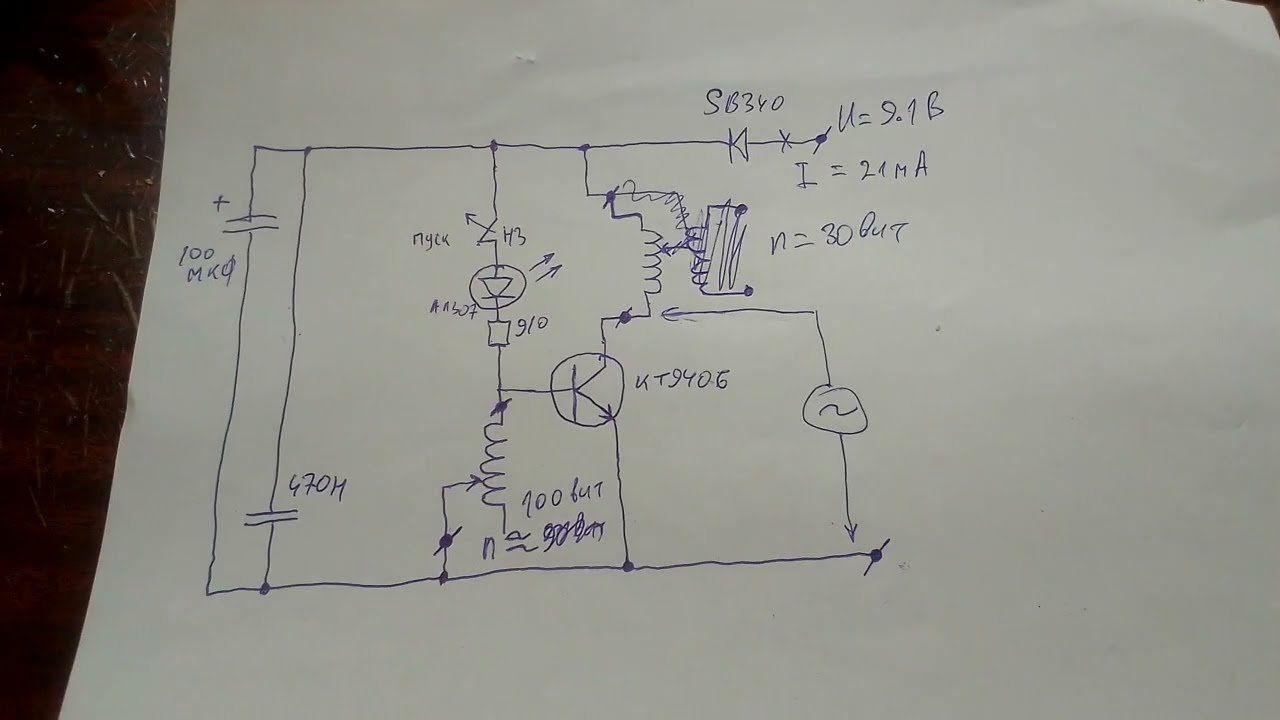 SB340
U = 9.1 В
I = 21 мА
+
100
мкф
пуск
НЗ
n = 30 вит
АЛ307
910
КТ940Б
470н
100 вит
n ≈